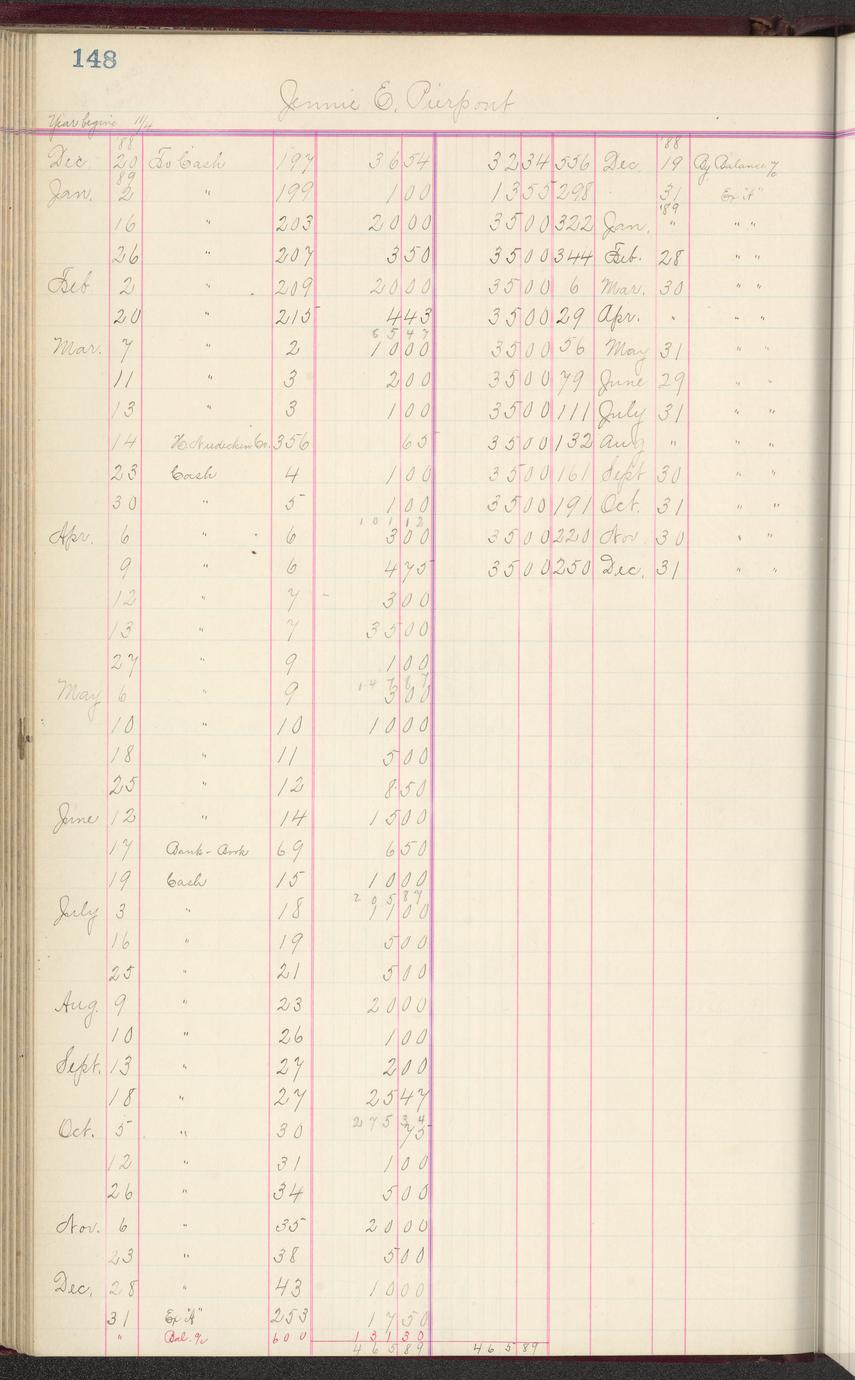 148
Jennie E. Pierpont
Year begins 11/4
'88 '88
Dec. 20 To Cash 197 36 54 32 34 556 Dec. 19 By Balance %
89
Jan. 2 " 199 1 00 13 55 298 31 Ex "A"
'89
16 " 203 20 00 35 00 322 Jan. " " "
26 " 207 3 50 35 00 344 Feb. 28 " "
Feb 2 " 209 20 00 35 00 6 Mar. 30 " "
20 " 215 4 43 35 00 29 Apr. " " "
85 47
Mar. 7 " 2 10 00 35 00 56 May 31 " "
11 " 3 2 00 35 00 79 June 29 " "
13 " 3 1 00 35 00 111 July 31 " "
14 356 65 35 00 132 Aug " " "
23 Cash 4 1 00 35 00 161 Sept 30 " "
30 " 5 1 00 35 00 191 Oct. 31 " "
101 12
Apr. 6 " 6 3 00 35 00 220 Nov. 30 " "
9 " 6 4 75 35 00 250 Dec. 31 " "
12 " 7 3 00
13 " 7 35 00
27 " 9 1 00
147 87
May 6 " 9 3 00
10 " 10 10 00
18 " 11 5 00
25 " 12 8 50
June 12 " 14 15 00
17 Bank-Book 69 6 50
19 Cash 15 10 00
205 87
July 3 " 18 11 00
16 " 19 5 00
25 " 21 5 00
Aug. 9 " 23 20 00
10 " 26 1 00
Sept. 13 " 27 2 00
18 " 27 25 47
275 34
Oct. 5 " 30 75
12 " 31 1 00
26 " 34 5 00
Nov. 6 " 35 20 00
23 " 38 5 00
Dec. 28 " 43 10 00
31 Ex "A" 253 17 50
" Bal. % 600 131 30
465 89 465 89